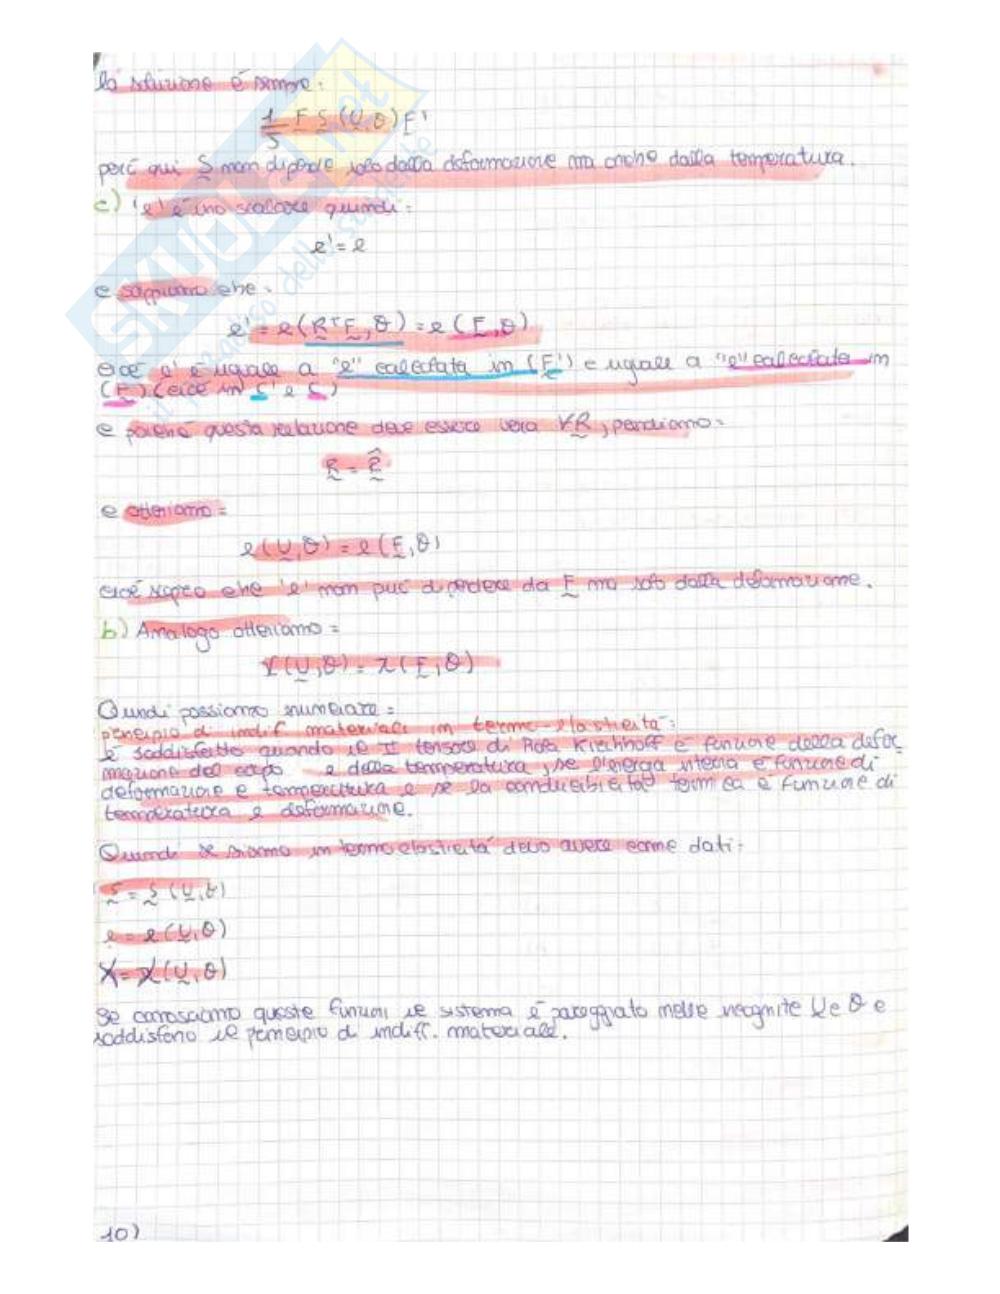 la soluzione è sempre:
1/J F S (U,θ) F^T
però qui S non dipende solo dalla deformazione ma anche dalla temperatura.
c) 'e' è uno scalare quindi:
e' = e
e sappiamo che:
e' = e (R^T F, θ) = e (F, θ)
cioè e' è uguale a "e" calcolata in (F') e uguale a "e" calcolata in
(F) (cioè in C' e C)
e poiché questa relazione deve essere vera ∀R, prendiamo:
R = R̂
e otteniamo:
e (U,θ) = e (F,θ)
cioè scopro che 'e' non può dipendere da F ma solo dalla deformazione.
b) Analogo otteniamo:
χ (U,θ) = χ (F,θ)
Quindi possiamo enunciare:
principio di indiff. materiale in termo-elasticità:
è soddisfatto quando il II tensore di Piola Kirchhoff è funzione della defor
mazione del corpo e della temperatura, se l'energia interna è funzione di
deformazione e temperatura e se la conducibilità termica è funzione di
temperatura e deformazione.
Quindi se siamo in termoelasticità devo avere come dati:
S = S (U,θ)
e = e (U,θ)
χ = χ (U,θ)
Se conosciamo queste funzioni il sistema è pareggiato nelle incognite U e θ e
soddisfano il principio di indiff. materiale.
10)
SKUOLA.net
il paradiso dello studente